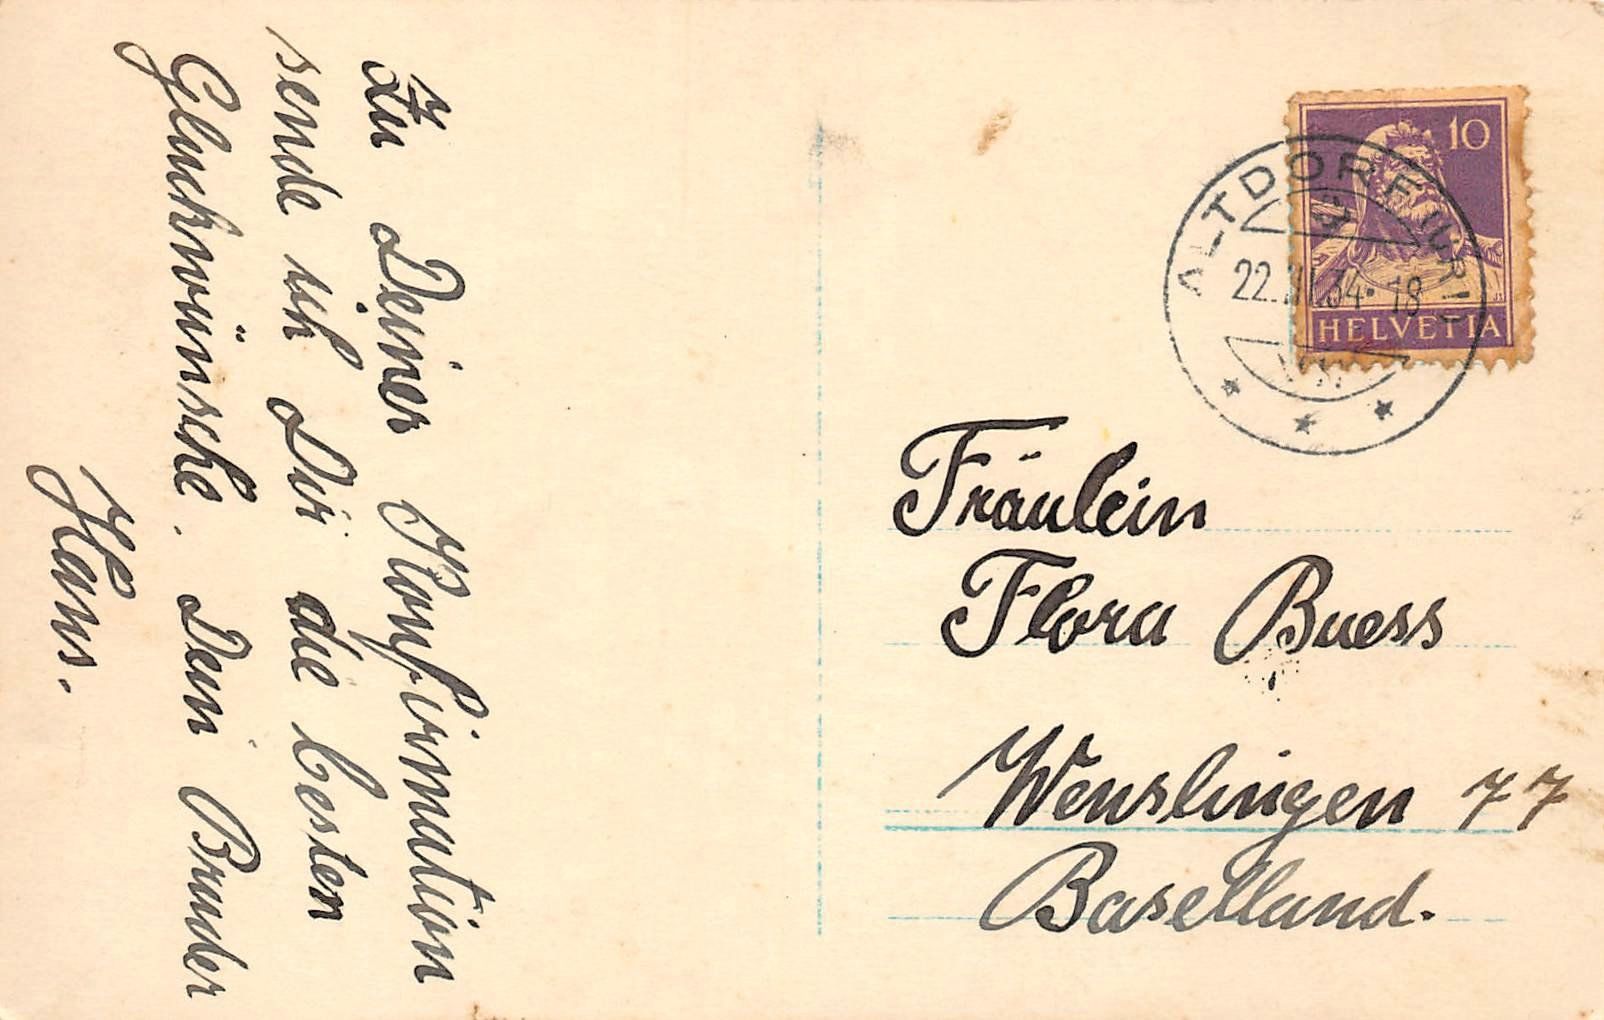 Zu Deiner Konfirmation
sende ich Dir die besten
Glückwünsche. Dein Bruder
Hans.
10
HELVETIA
ALTDORF (URI)
22.III.34-18
Fräulein
Flora Buess
Wenslingen 77
Baselland.